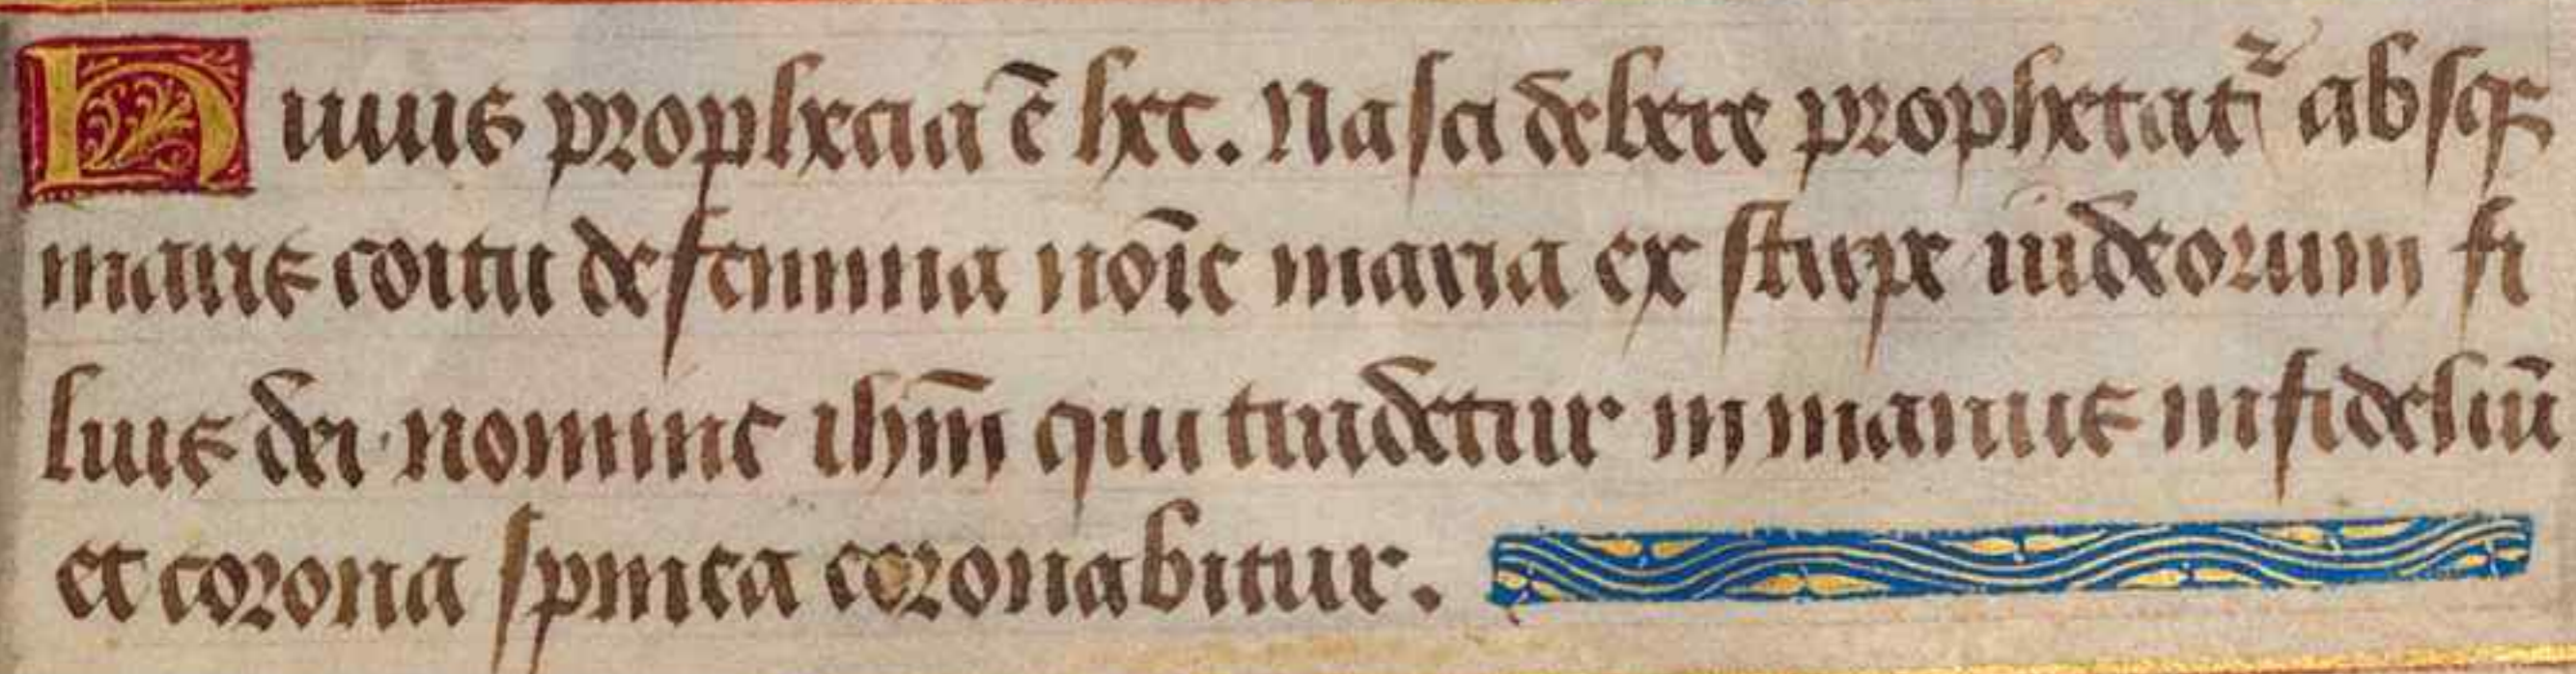 Huius prophecia ē hec. Nasci debere prophetat᷑ absq̄
maris coitu de femina noīe maria ex stirpe iudeorum fi
lius dei nomine ihm̄ qui tradetur in manus infideliū
et corona spinea coronabitur.